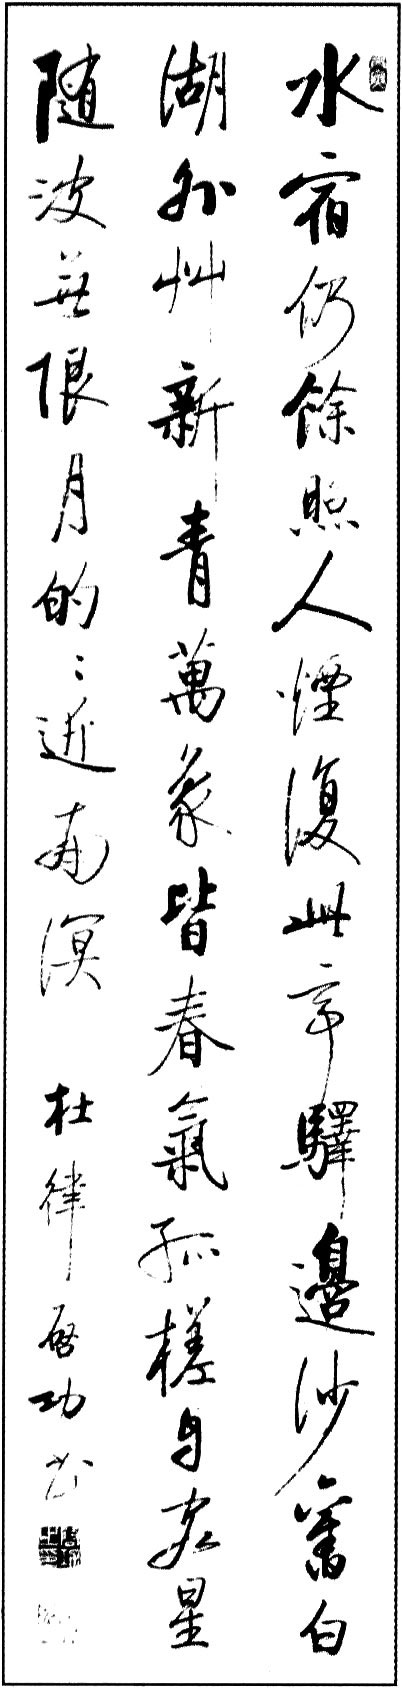 水宿仍餘照人煙復此亭驛邊沙舊白
湖外艸新青萬象皆春氣孤槎自客星
随波無限月的〻近南溟 杜律 啓功书